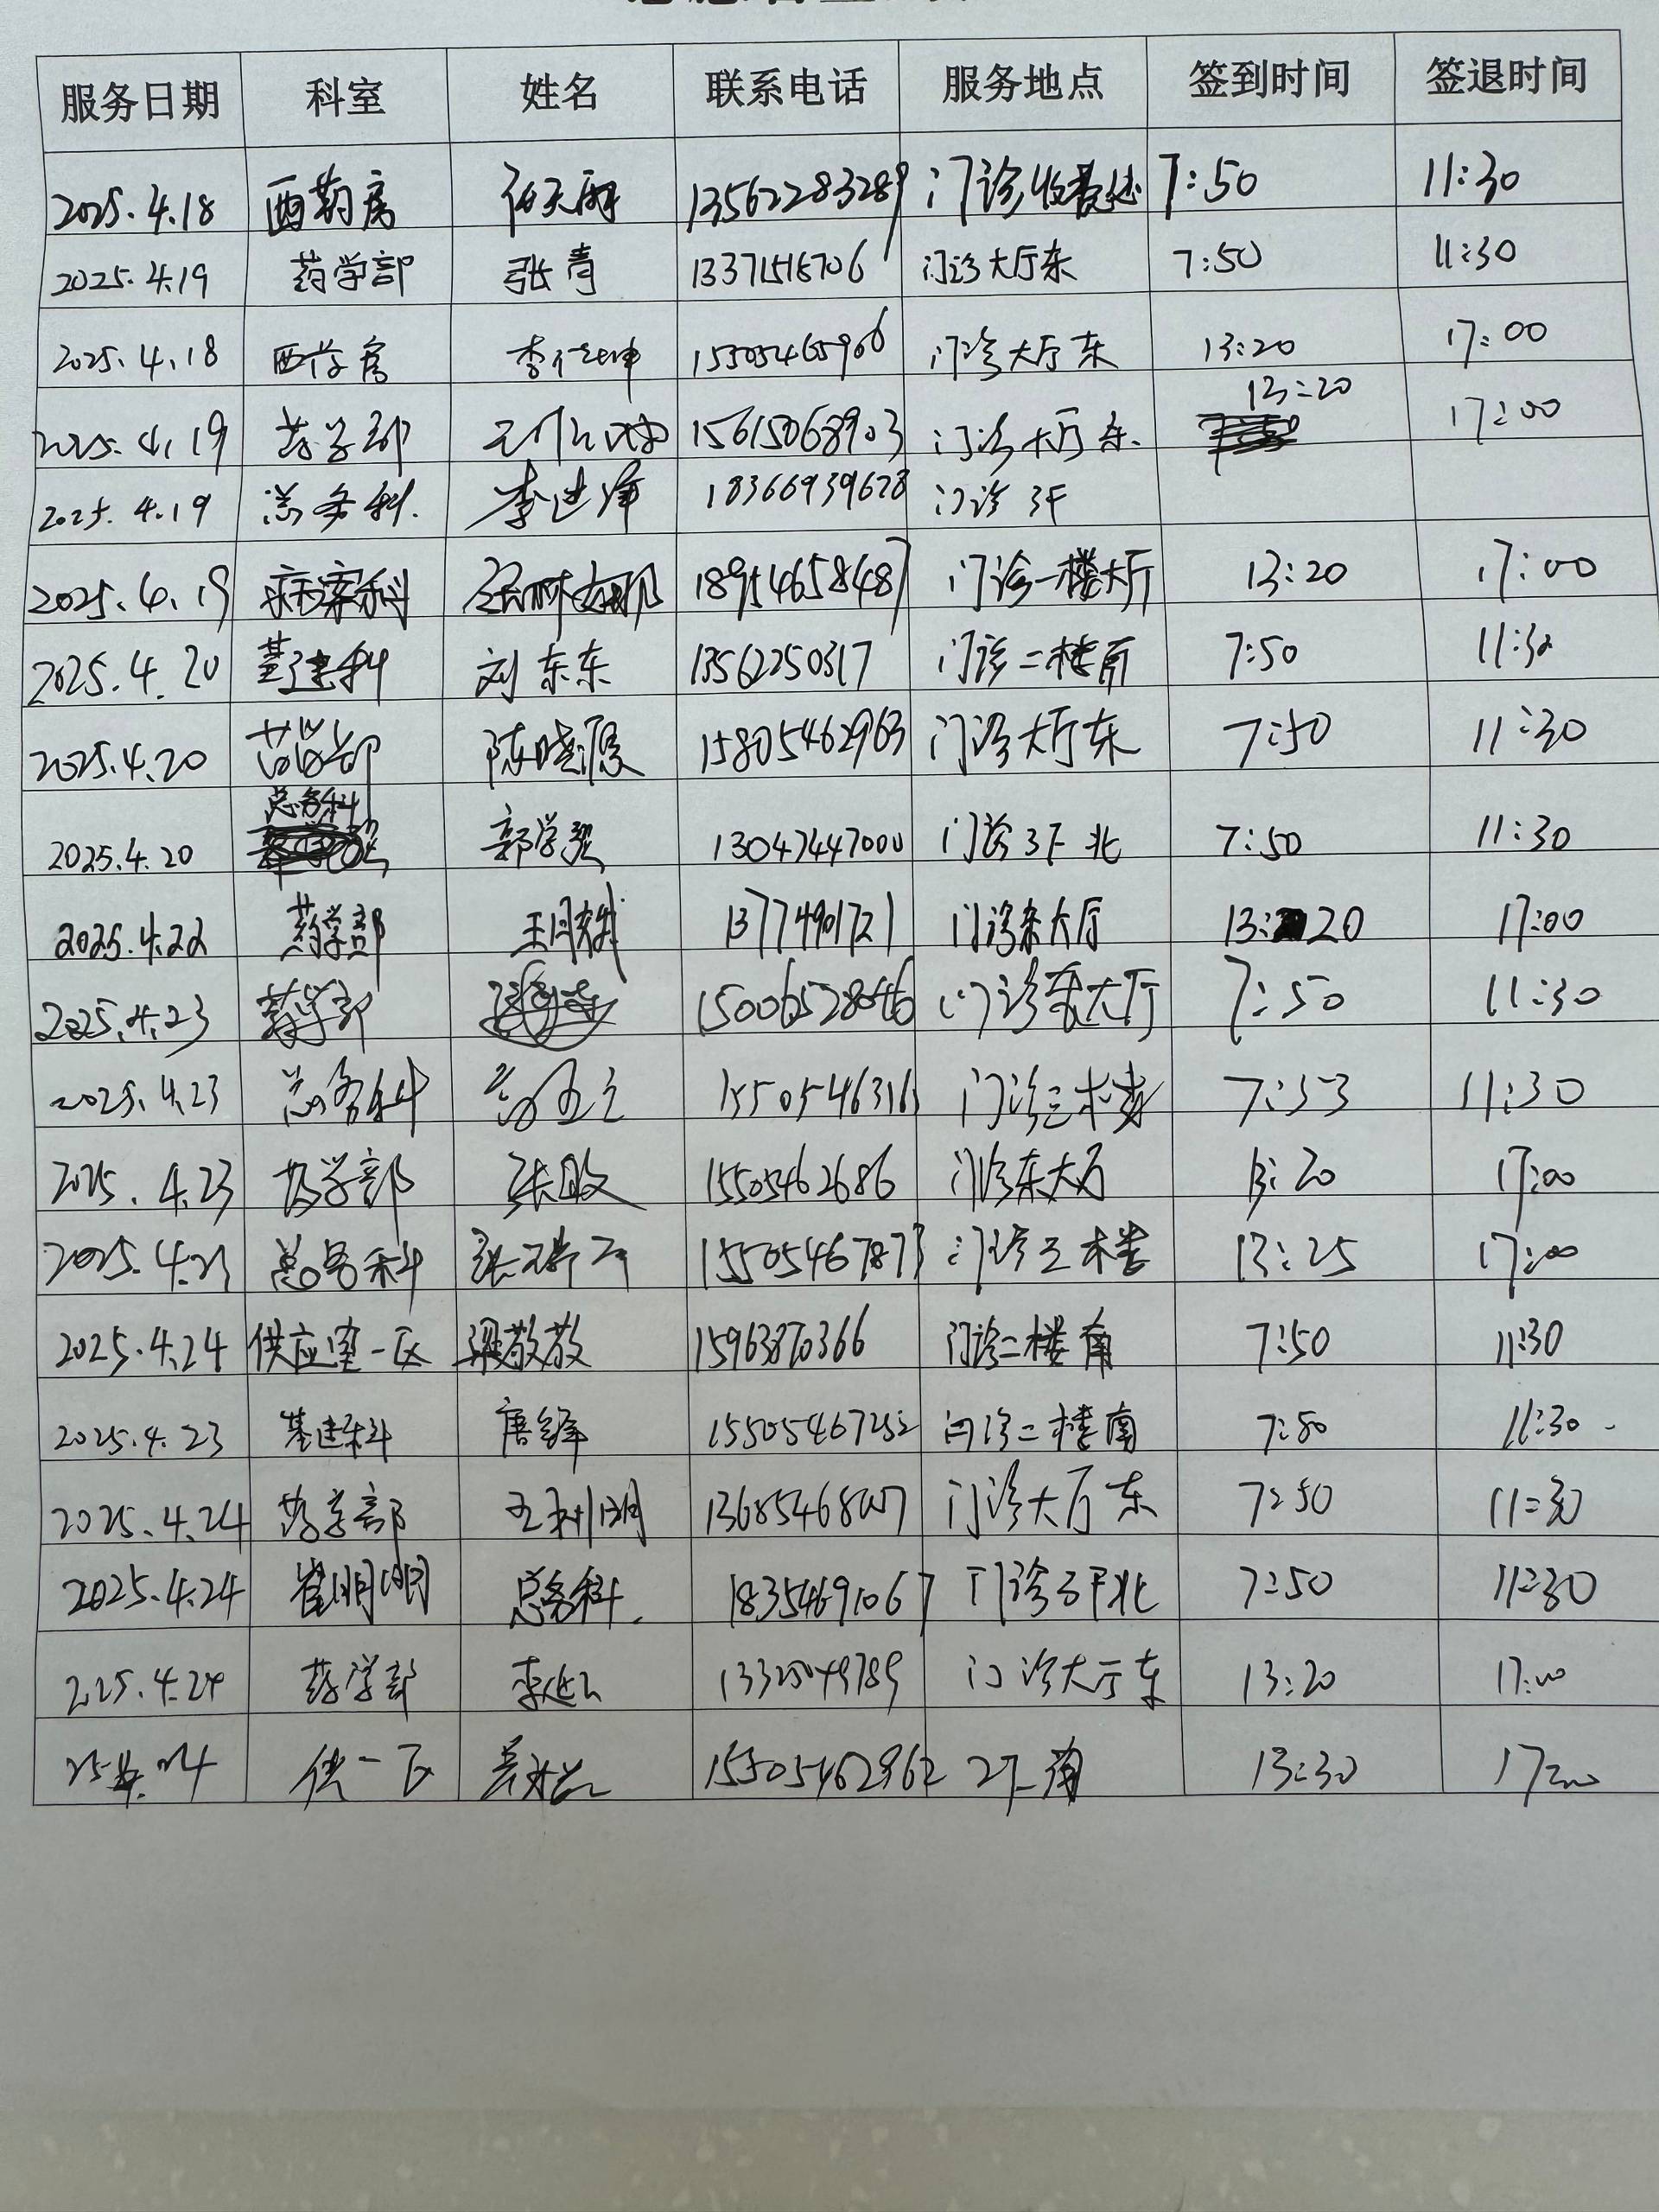 服务日期 科室 姓名 联系电话 服务地点 签到时间 签退时间
2025.4.18 西药房 13562283289 门诊收费处 7:50 11:30
2025.4.19 药学部 张青 门诊大厅东 7:50 11:30
2025.4.18 西药房 15505465906 门诊大厅东 13:20 17:00
2025.4.19 药学部 15615068903 门诊大厅东 13:20 17:00
2025.4.19 总务科 18366939678 门诊3F
2025.4.19 病案科 18954658487 门诊一楼大厅 13:20 17:00
2025.4.20 基建科 刘东东 13562250317 门诊二楼南 7:50 11:30
2025.4.20 药学部 15805462963 门诊大厅东 7:50 11:30
2025.4.20 总务科 13047447000 门诊3F北 7:50 11:30
2025.4.22 药学部 13774901721 门诊东大厅 13:20 17:00
2025.4.23 药学部 门诊东大厅 7:50 11:30
2025.4.23 总务科 门诊三楼 7:53 11:30
2025.4.23 药学部 张敏 15505462686 门诊东大厅 13:20 17:00
2025.4.23 总务科 15505467873 门诊三楼 13:25 17:00
2025.4.24 供应室一区 梁敬敬 15963870366 门诊二楼南 7:50 11:30
2025.4.23 基建科 唐锋 15505467252 门诊二楼南 7:50 11:30
2025.4.24 药学部 门诊大厅东 7:50 11:30
2025.4.24 崔明明 总务科 18354691067 门诊3F北 7:50 11:30
2025.4.24 药学部 门诊大厅东 13:20 17:00
25.4.24 供一区 15505462962 2F南 13:30 17:00